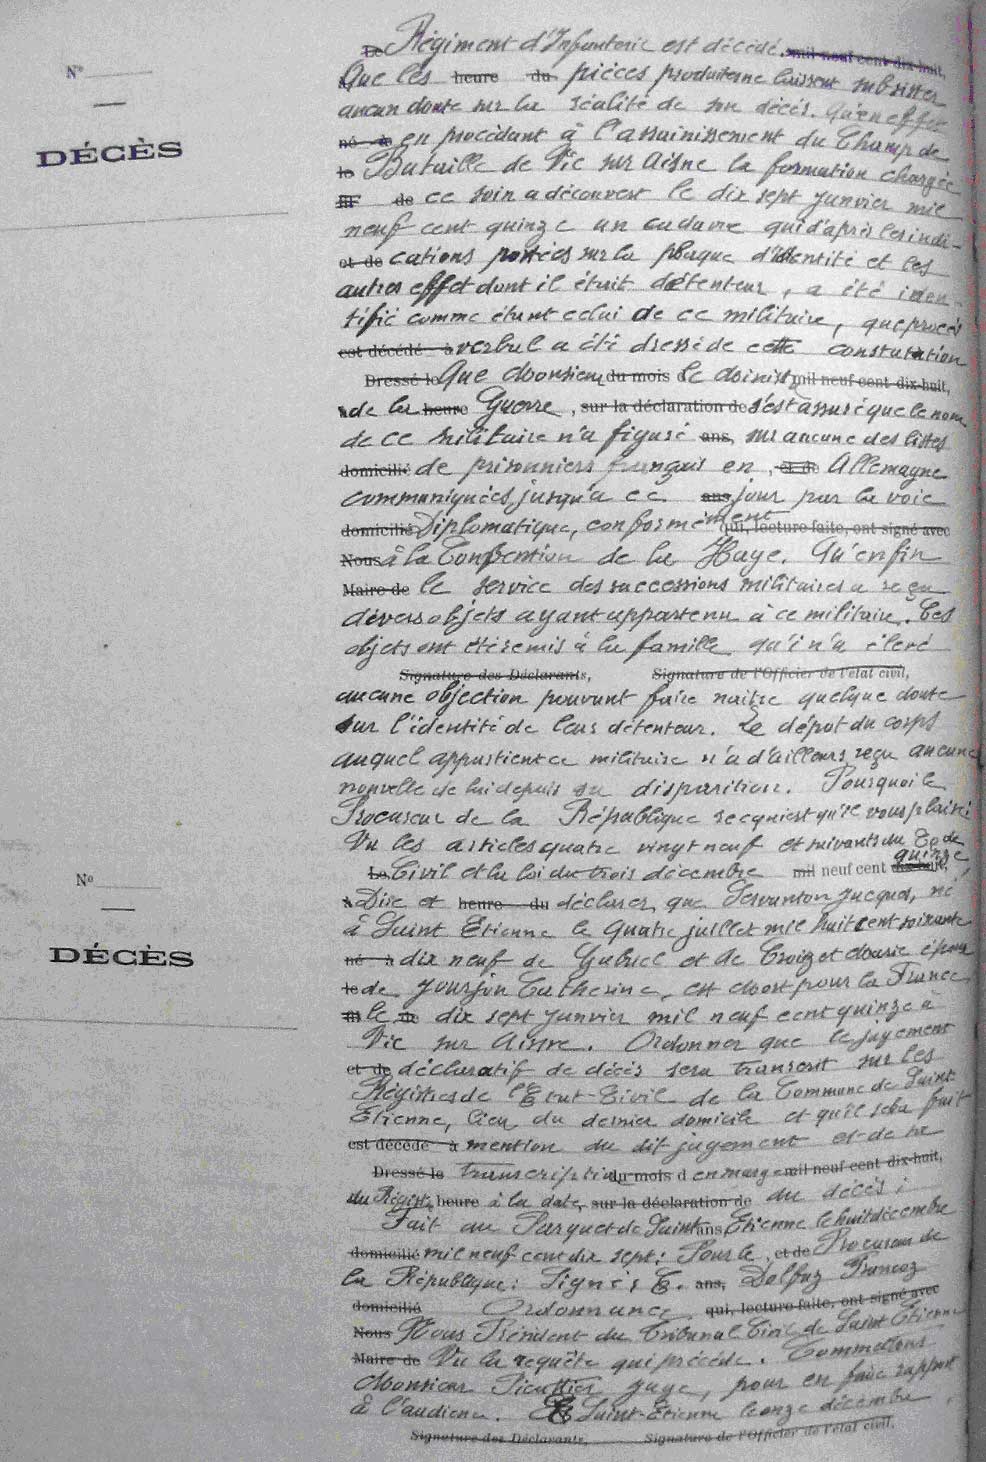 Nº
DÉCÈS
Le Régiment d'Infanterie est décédé. mil neuf cent dix-huit,
à Que les heure du pièces produites ne laissent subsister
aucun doute sur la réalité de son décès. Qu'en effet
né à en procédant à l'assainissement du Champ de
le Bataille de Vic sur Aisne la formation chargée
de ce soin a découvert le dix sept janvier mil
neuf cent quinze un cadavre qui d'après les indi-
et de cations portées sur la plaque d'identité et les
autres effet dont il était détenteur, a été iden-
tifié comme étant celui de ce militaire, que procès
est décédé à verbal a été dressé de cette constatation
Dressé le Que Monsieur du mois d le Ministre mil neuf cent dix-huit,
à de la heure Guerre, sur la déclaration de s'est assuré que le nom
de ce militaire n'a figuré ans, sur aucune des listes
domicilié de prisonniers français en , et de Allemagne
communiquées jusqu'à ce ans, jour par la voie
domicilié Diplomatique, conformément qui, lecture faite, ont signé avec
Nous à la Convention de la Haye. Qu'enfin
Maire de le service des successions militaires a reçu
divers objets ayant appartenu à ce militaire. Ces
objets ont été remis à la famille qui n'a élevé
Signature des Déclarants, Signature de l'Officier de l'état civil,
aucune objection pouvant faire naître quelque doute
sur l'identité de leur détenteur. Le dépôt du corps
auquel appartient ce militaire n'a d'ailleurs reçu aucune
nouvelle de lui depuis sa disparition. Pourquoi le
Procureur de la République requiert qu'il vous plaise
Vu les articles quatre vingt neuf et suivants du Code
Nº
Le Civil et la loi du trois décembre mil neuf cent dix-huit, quinze,
à Dire et heure du déclarer que Servanton Jacques, né
à Saint Etienne le quatre juillet mil huit cent soixante
DÉCÈS
né à dix neuf de Gabriel et de Croizet Marie époux
le de Jourjon Catherine, est Mort pour la France
le de dix sept janvier mil neuf cent quinze à
Vic sur Aisne. Ordonner que le jugement
et de déclaratif de décès sera transcrit sur les
Régistres de l'Etat-Civil de la Commune de Saint
Etienne, lieu du dernier domicile et qu'il sera fait
est décédé à mention du dit jugement et de sa
Dressé le transcription du mois d en marge mil neuf cent dix-huit,
du Régist. heure à la date, sur la déclaration de du décès :
Fait au Parquet de Saint ans, Etienne le huit décembre
domicilié mil neuf cent dix sept: Pour le , et de Procureur de
la République: Signé: ans, Dolfuz Francoz
domicilié Ordonnance qui, lecture faite, ont signé avec
Nous Nous Président du Tribunal Civil de Saint Etienne
Maire de Vu la requête qui précède. Commettons
Monsieur juge, pour en faire rapport
à l'audience. Saint-Etienne le onze décembre
Signature des Déclarants, Signature de l'Officier de l'état civil,